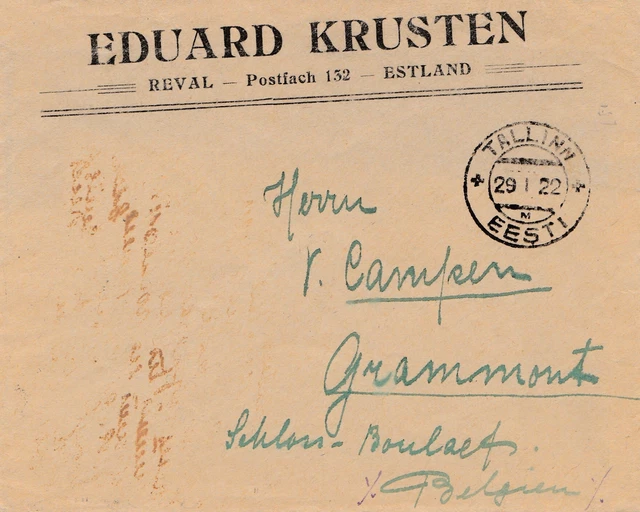 EDUARD KRUSTEN
REVAL — Postfach 132 — ESTLAND
TALLINN
29 I 22
M
EESTI
Herrn
V. Campen
Grammont
Schloss-Boulaef.
Belgien